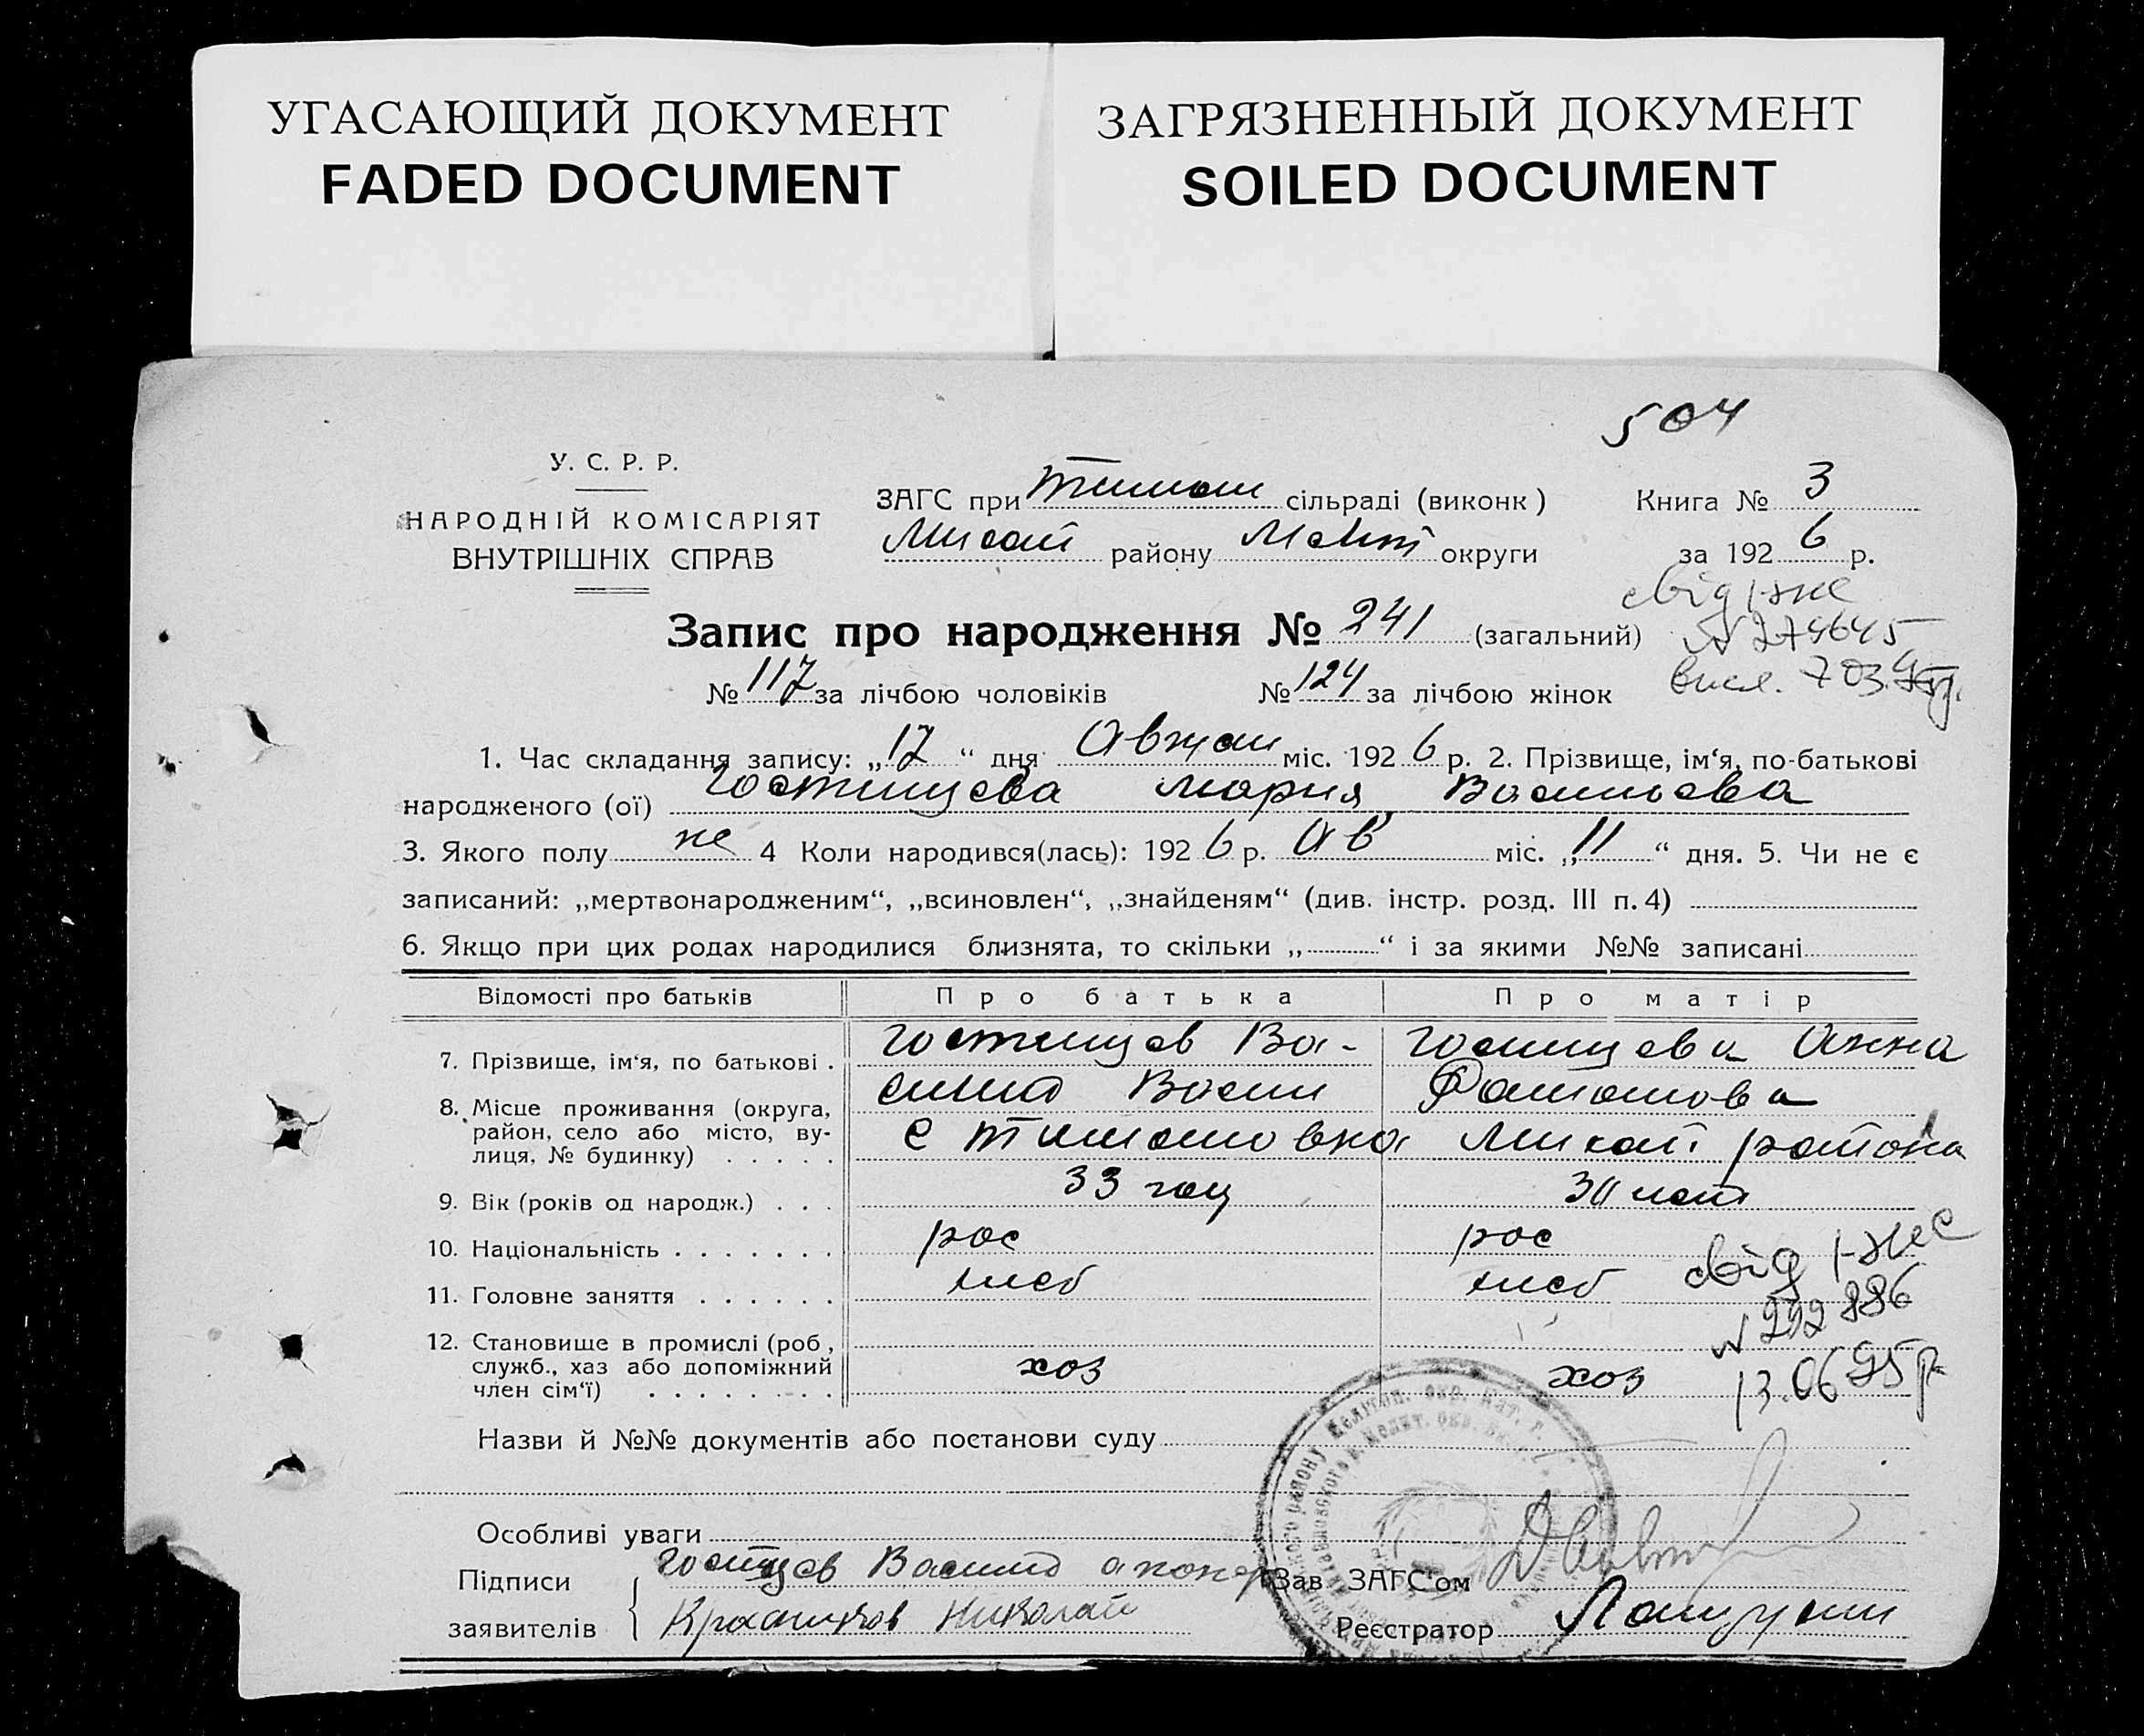 УГАСАЮЩИЙ ДОКУМЕНТ
FADED DOCUMENT
ЗАГРЯЗНЕННЫЙ ДОКУМЕНТ
SOILED DOCUMENT
504
У. С. Р. Р.
НАРОДНІЙ КОМІСАРІЯТ
ВНУТРІШНІХ СПРАВ
ЗАГС при Тимош сільраді (виконк)
района району Меліт округи
Книга № 3
за 192 6 р.
свід І-же
№ 274645
Запис про народження № 241 (загальний)
№ 117 за лічбою чоловіків № 124 за лічбою жінок
1. Час складання запису: „ 17 “ дня Август міс. 192 6 р. 2. Прізвище, ім‘я, по-батькові
народженого (ої) Гостищева Мария Васильева
3. Якого полу же 4 Коли народився(лась): 192 6 р. Ав міс. „ 11 “ дня. 5. Чи не є
записаний: „мертвонародженим“, „всиновлен“, „знайденям“ (див. інстр. розд. III п. 4)
6. Якщо при цих родах народилися близнята, то скільки „ “ і за якими №№ записані
Відомості про батьків Про батька Про матір
7. Прізвище, ім‘я, по батькові . Гостищев Ва- Гостищева Анна
силий Васил
8. Місце проживання (округа,
район, село або місто, ву-
лиця, № будинку) . . . . . с Тимошовка района
9. Вік (років од народж.) . . . 33 год 30 лет
10. Національність . . . . . . . рос рос
11. Головне заняття . . . . . . хлеб хлеб
свід І-же
№ 292886
13.06 95р
12. Становище в промислі (роб ,
служб., хаз або допоміжний
член сім‘ї) . . . . . . . . . хоз хоз
Назви й №№ документів або постанови суду
Особливі уваги
Підписи
заявителів
Василий
Красников Николай
Зав ЗАГС‘ом
Реєстратор